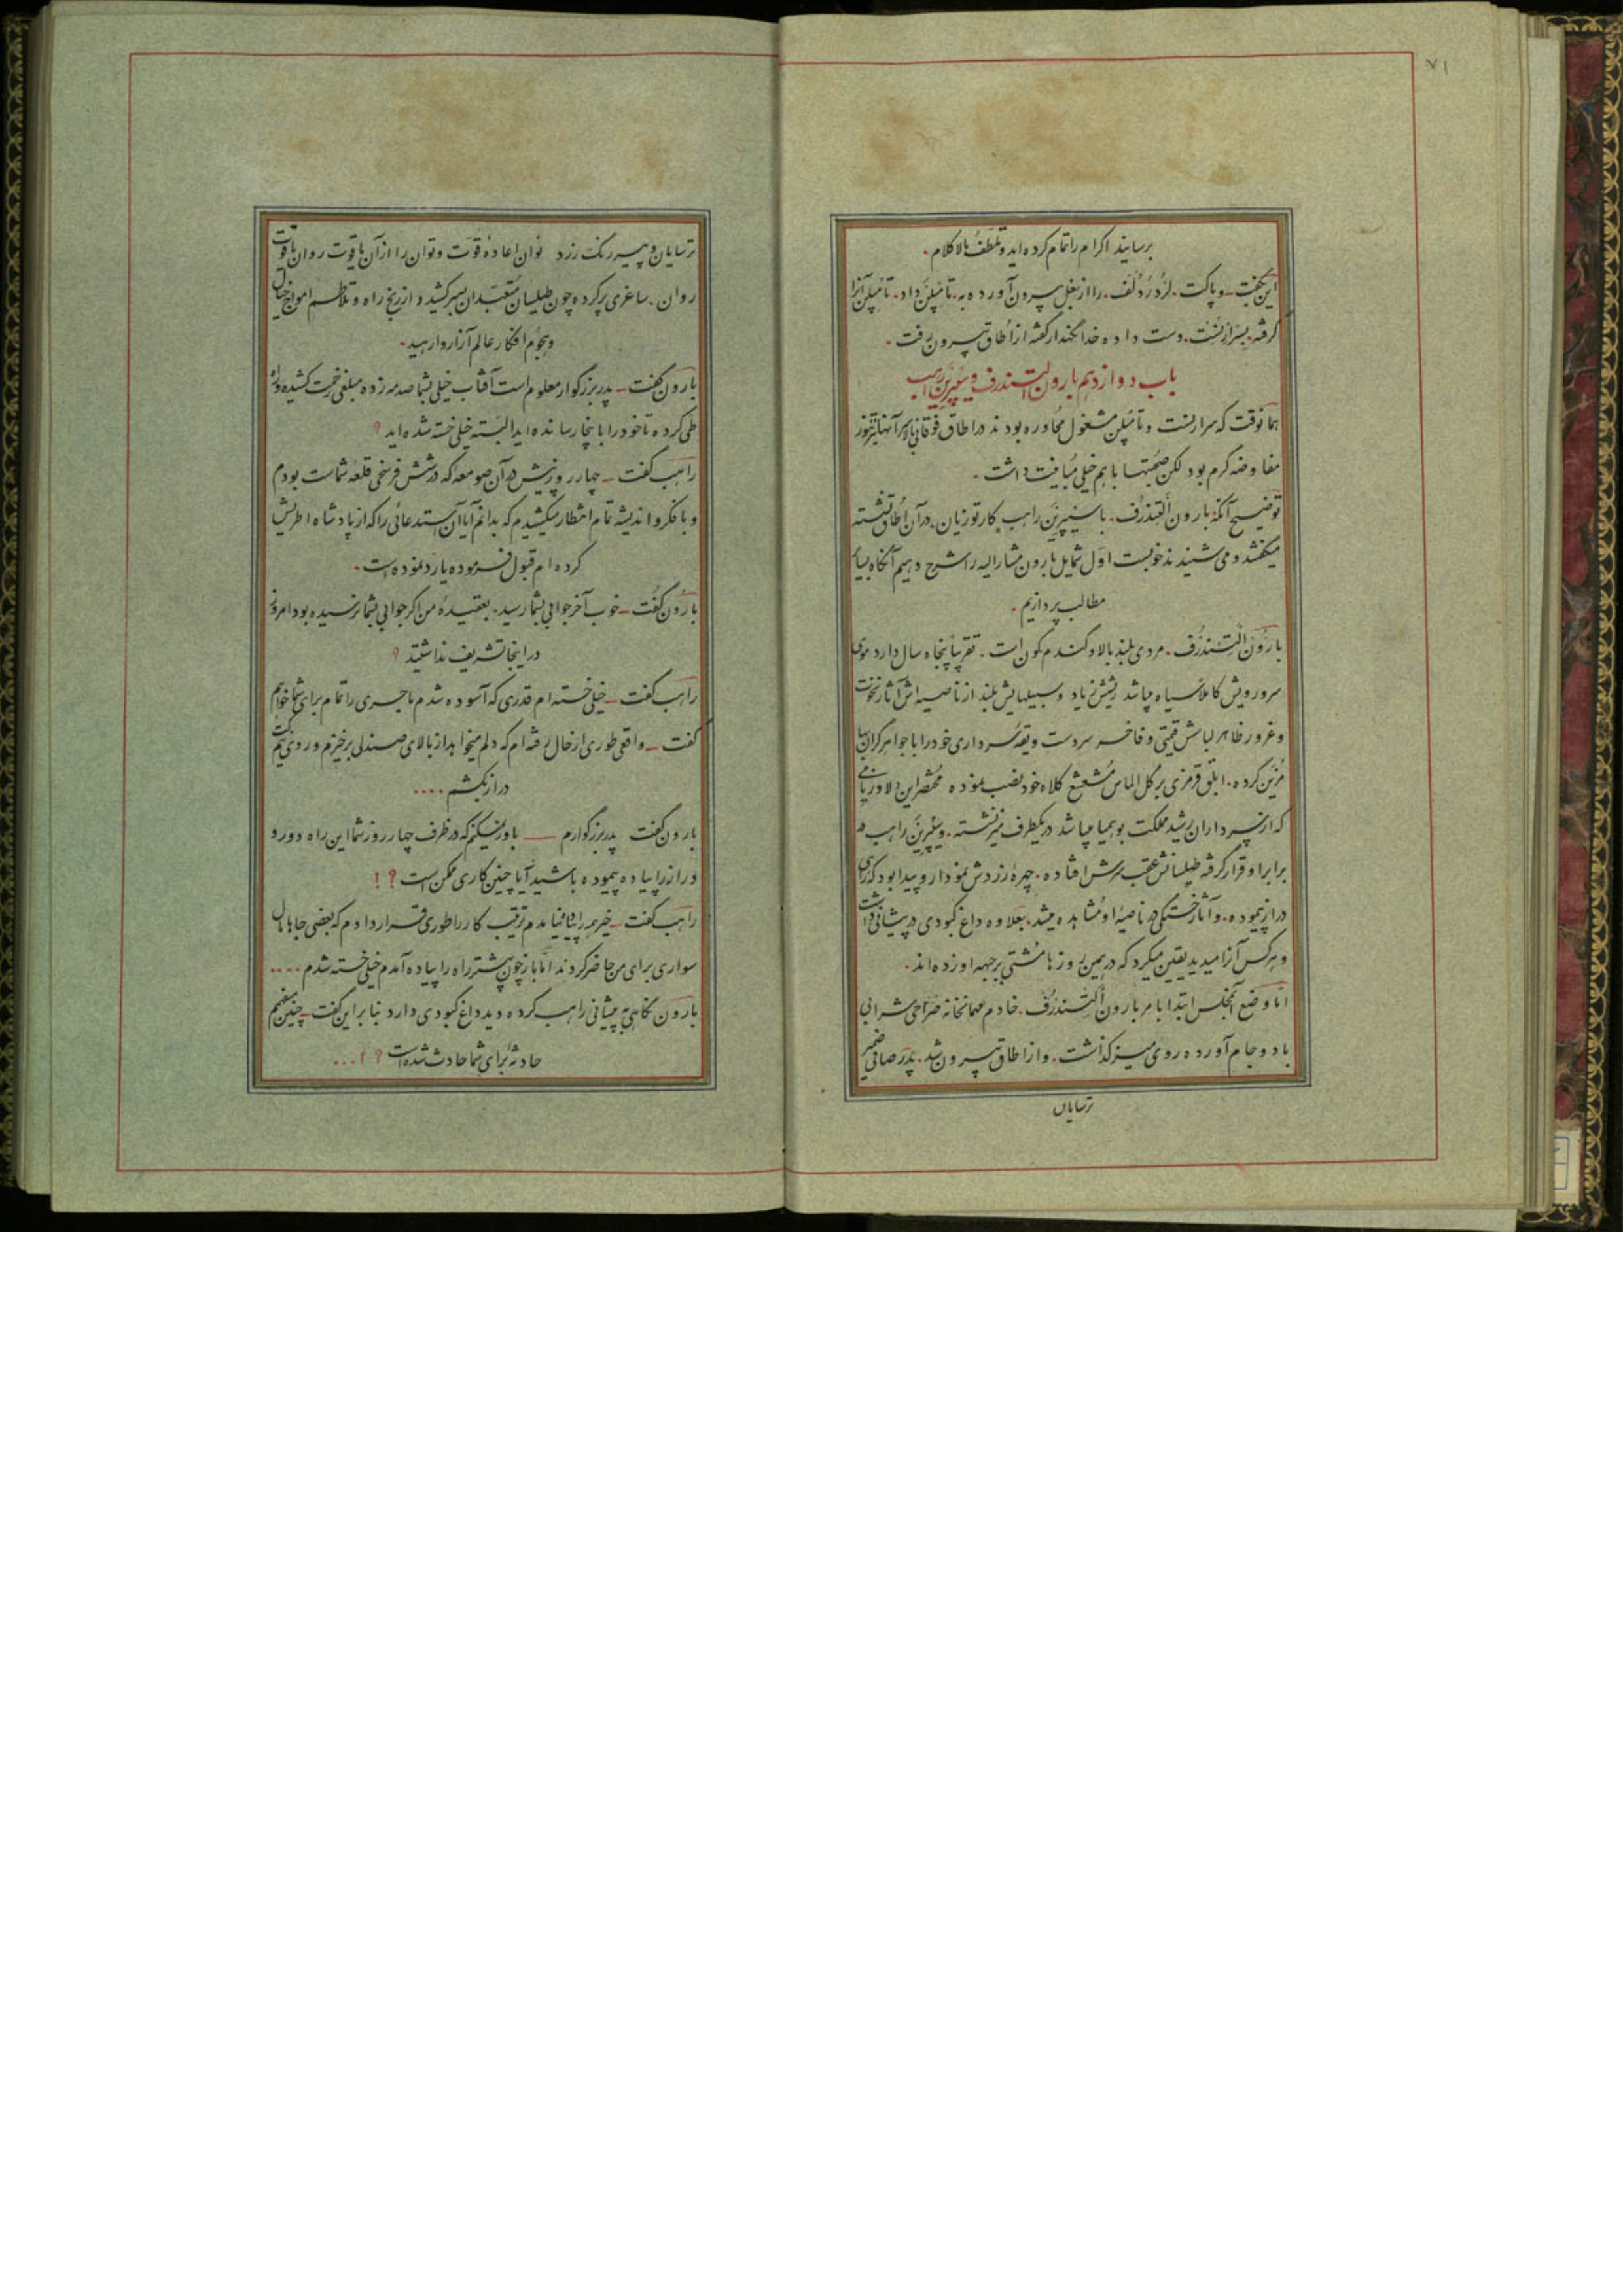 ۷۱
برسانید اکرام را تمام کرده‌اید و تلطف بالا کلام .
این بگفت_ وپاکت . لرد ردلف . را از بغل بیرون آورده به . تامپلن داد . تامپلن آنرا
گرفته . بسرارنست . دست داده خدانگهدار گفته از اُطاق بیرون رفت .
باب دوازدهم بارون التندرف و سیپرین راهب
همانوقت که سرارنست و تامپلن مشغول محاوره بودند در اطاق فوقانی بالا سر آنها نیز تنور
مفاوضه گرم بود لکن صحبتها باهم خیلی مباینت داشت .
توضیح آنکه بارون التندرف . با سیپرین راهب کارتوزیان . در آن اُطاق نشسته
میگفتند و می‌شنیدند خوبست اول شمایل بارون مشارالیه را شرح دهیم آنگاه ببیان
مطالب پردازیم .
بارون التندرف . مردی بلند بالا و گندم‌گون است . تقریباً پنجاه سال دارد موی
سر و رویش کاملا سیاه میباشد ریشش زیاد و سبیلهایش بلند از ناصیه‌اش آثار نخوت
و غرور ظاهر لباسش قیمتی و فاخر سر دست و یقهٔ سرداری خود را با جواهر گران‌بها
مزین کرده . ابلق قرمزی بر گل الماس مشعشع کلاه خود نصب نموده مختصر این دلاور نامی
که از سرداران رشید مملکت بوهیمیا میباشد در یکطرف میز نشسته . و سیپرین راهب در
برابر او قرار گرفته طیلسانش عقب سرش افتاده . چهرهٔ زردش نمودار و پیدا بود که راهی
دراز پیموده . و آثار خستگی در ناصیهٔ او مشاهده میشد . بعلاوه داغ کبودی در پیشانی داشت
و هرکس آنرا میدید یقین میکرد که در همین روزها مشتی بر جبهه او زده‌اند .
اما وضع آنمجلس ابتدا با مر بارون التندرف . خادم مهمانخانه صراحی شرابی
با دو جام آورده روی میز گذاشت . و از اطاق بیرون شد . پدر صافی ضمیر
ترسایان
ترسایان و پیر رنگ زرد نوان اعادهٔ قوّت و توان را از آن یاقوت روان یا قوت
روان . ساغری پر کرده چون طیلسان متعبدان بسر کشید و از رنج راه و تلاطم امواج خیال
و هجوم افکار عالم آزار وارهید .
بارون گفت_ پدر بزرگوار معلوم است آفتاب خیلی بشما صدمه زده مبلغی زحمت کشیده و راه
طی کرده تا خود را باینجا رسانده‌اید البته خیلی خسته شده‌اید ؟
راهب گفت_ چهار روز پیش در آن صومعه که در شش فرسخی قلعه شماست بودم
و با فکر و اندیشه تمام انتظار میکشیدم که بدانم آیا آن استدعائی را که از پادشاه اطریش
کرده‌ام قبول فرموده یا رد نموده است .
بارون گفت_ خوب آخر جوابی بشما رسید . بعقیدهٔ من اگر جوابی بشما نرسیده بود امروز
در اینجا تشریف نداشتید ؟
راهب گفت_ خیلی خسته‌ام قدری که آسوده شدم ماجری را تمام برای شما خواهم
گفت_ واقعی طوری از حال رفته‌ام که دلم میخواهد از بالای صندلی برخیزم و روی نیم‌کت
دراز بکشم ....
بارون گفت پدر بزرگوارم __ باور نمیکنم که در ظرف چهار روز شما این راه دور و
دراز را پیاده پیموده باشید آیا چنین کاری ممکن است ؟ !
راهب گفت_ خیر همه را پیاده نیامدم ترتیب کار را طوری قرار دادم که بعضی جاها مال
سواری برای من حاضر کردند امّا باز چون بیشتر راه را پیاده آمدم خیلی خسته شدم ....
بارون نگاهی به پیشانی راهب کرده دید داغ کبودی دارد بنابراین گفت_ چنین میفهمم
حادثهٔ برای شما حادث شده است ؟ ! ...